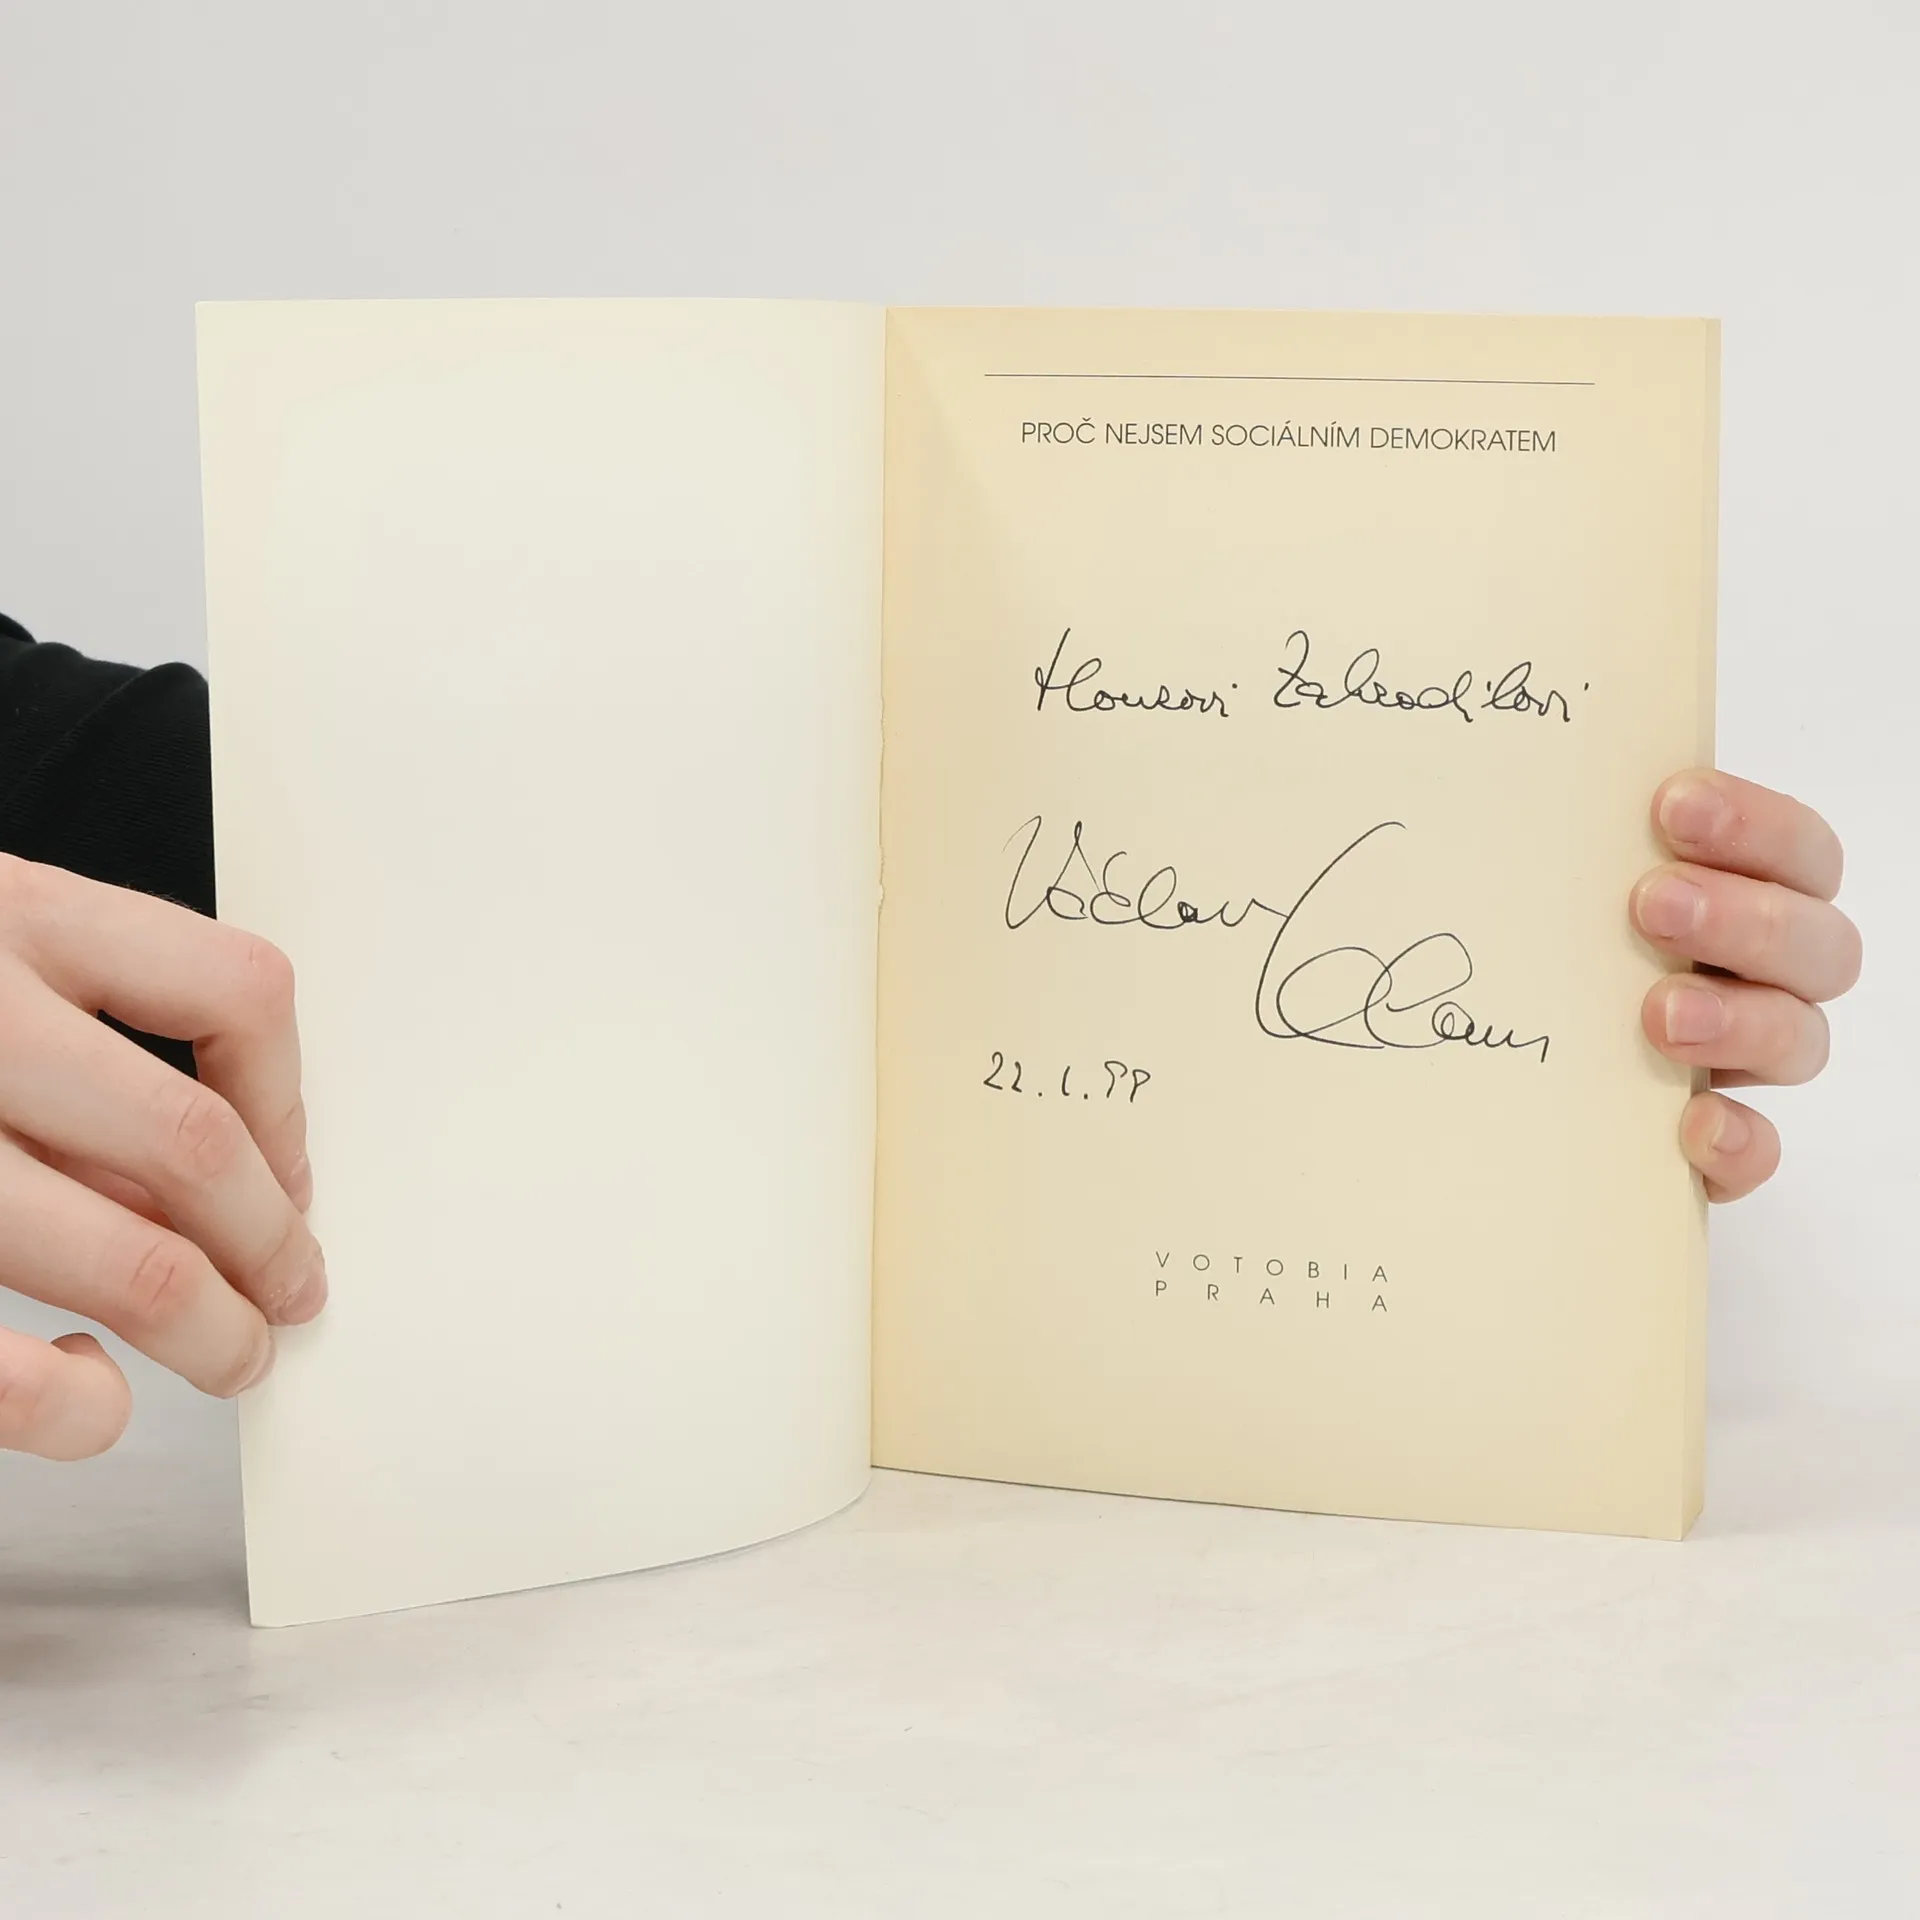 PROČ NEJSEM SOCIÁLNÍM DEMOKRATEM
Zahradilovi
Václav
Klaus
22.1.99
VOTOBIA
PRAHA